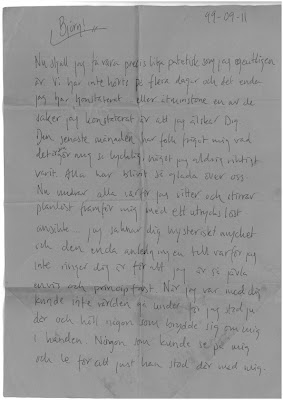 99-09-11
Björn!
Nu skall jag få vara precis lika patetisk som jag egentligen
är. Vi har inte hörts på flera dagar och det enda
jag har konstaterat eller åtminstone en av de
saker jag konstaterat är att jag älskar Dig
Den senaste månaden har folk frågat mig vad
det är som gör mig så lycklig något jag aldrig riktigt
varit. Alla har blivit så glada över oss.
Nu undrar alla varför jag sitter och stirrar
planlöst framför mig med ett uttryckslöst
ansikte... jag saknar dig hysteriskt mycket
och den enda anledningen till varför jag
inte ringer dig är för att jag är så jävla
envis och principfast. När jag var med dig
kunde inte världen gå under för jag stod ju
där och höll någon som brydde sig om mig
i handen. Någon som kunde se på mig
och le för att just han stod där med mig.